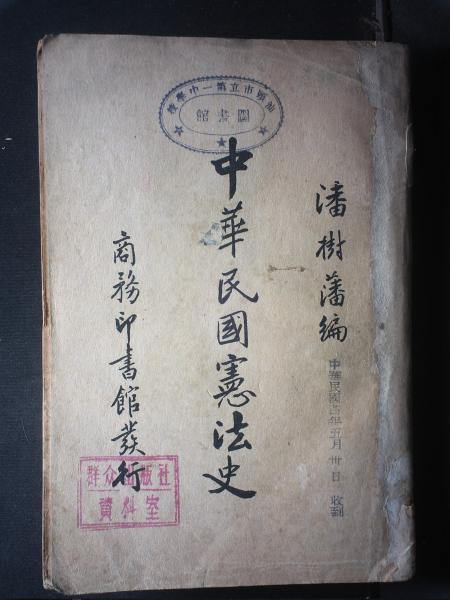 汕頭市立第一中學校
圖書館
潘樹藩編
中華民國 年五月卅日 收到
中華民國憲法史
商務印書館發行
群众出版社
資料室